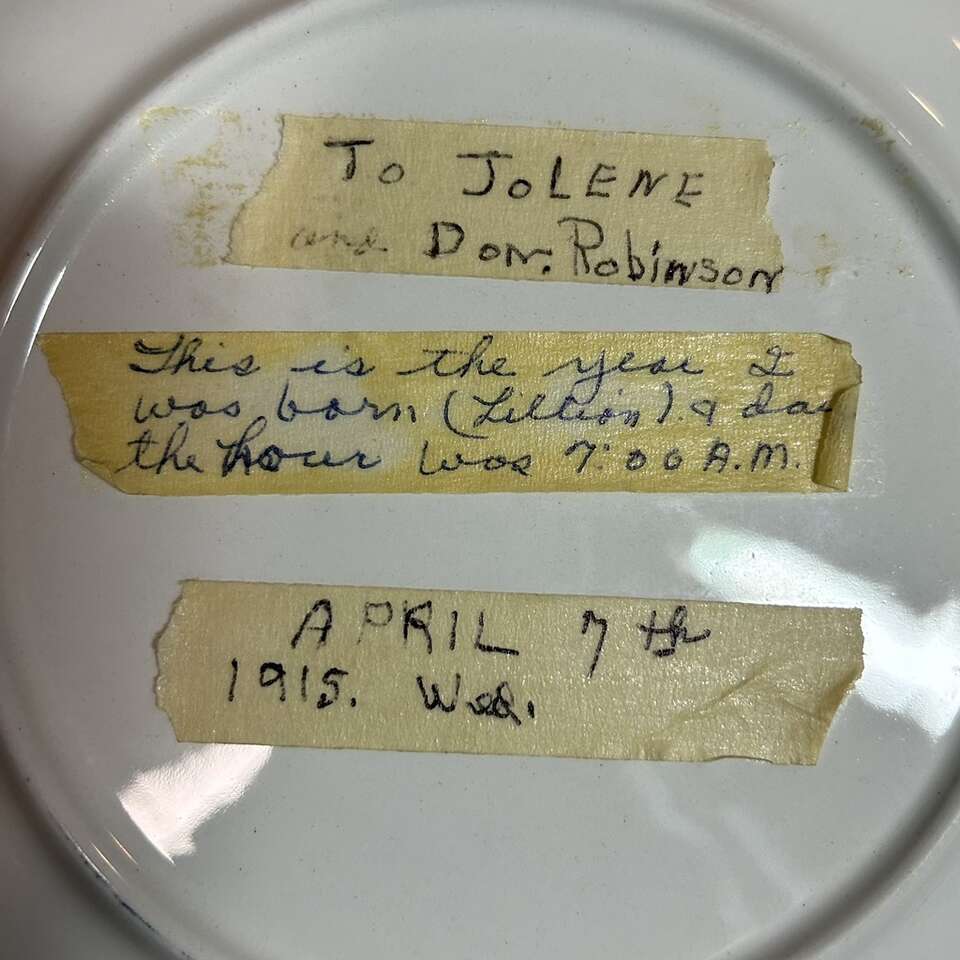 To JoLENE
and Don. Robinson
This is the year I
was born (Lillion). & da
the hour was 7:00 A.M.
APRIL 7th
1915. Wed.